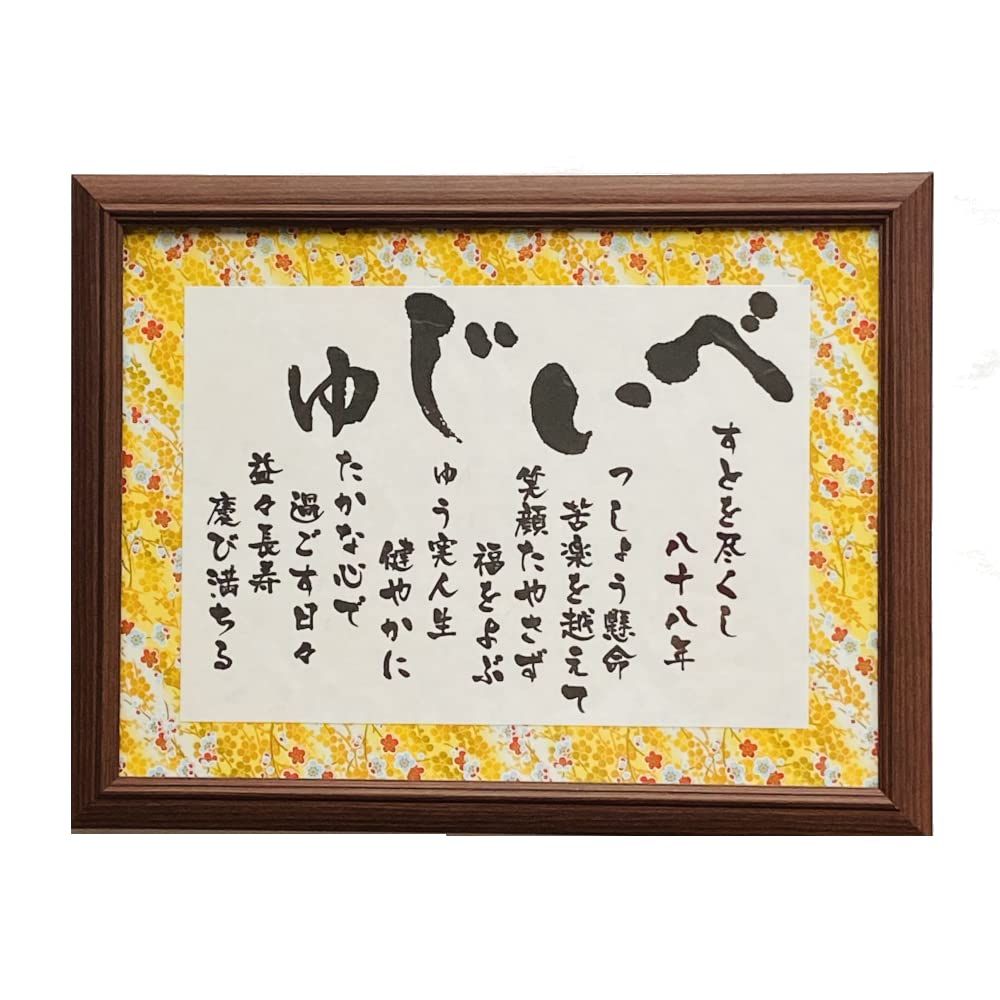 べいじゅ
すとを尽くし
八十八年
つしょう懸命
苦楽を越えて
笑顔たやさず
福をよぶ
ゅう実人生
健やかに
たかな心で
過ごす日々
益々長寿
慶び満ちる